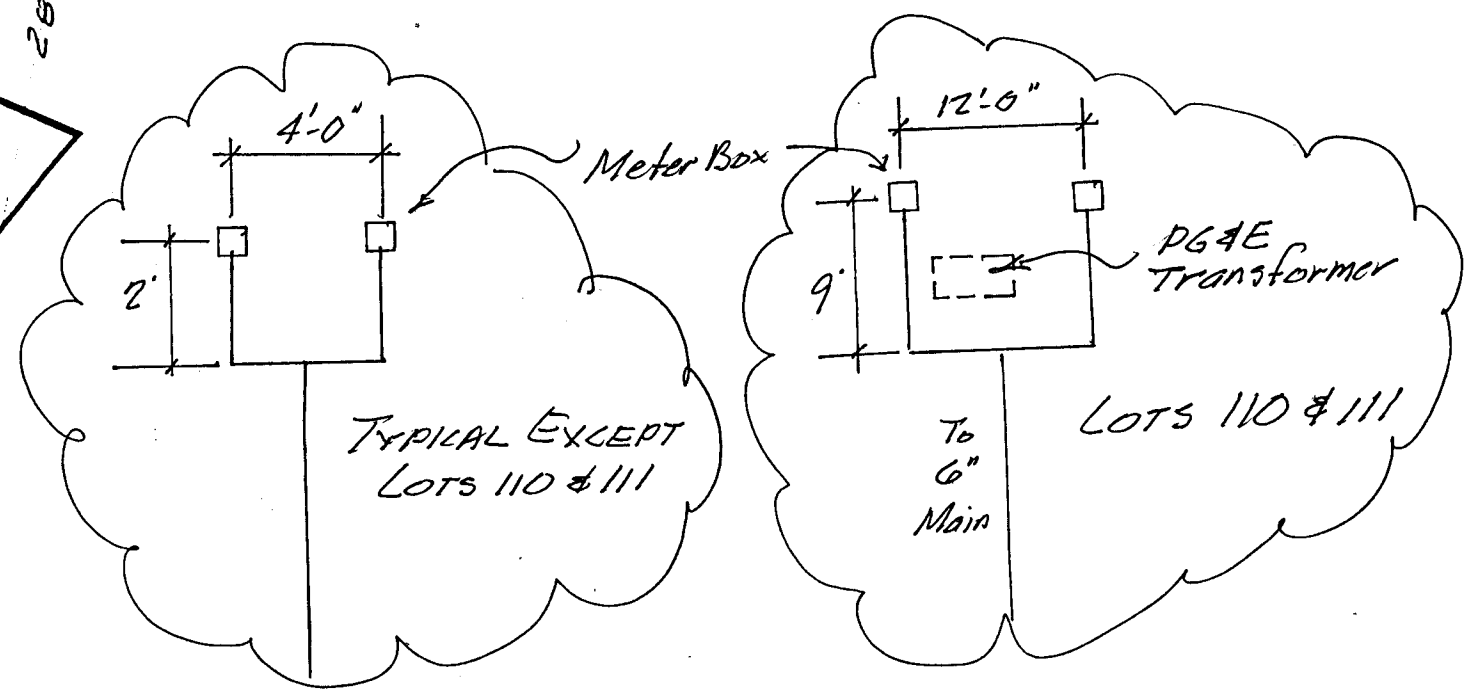 28
4'-0"
Meter Box
2'
TYPICAL EXCEPT
LOTS 110 & 111
12'-0"
9'
PG&E
Transformer
To
6"
Main
LOTS 110 & 111